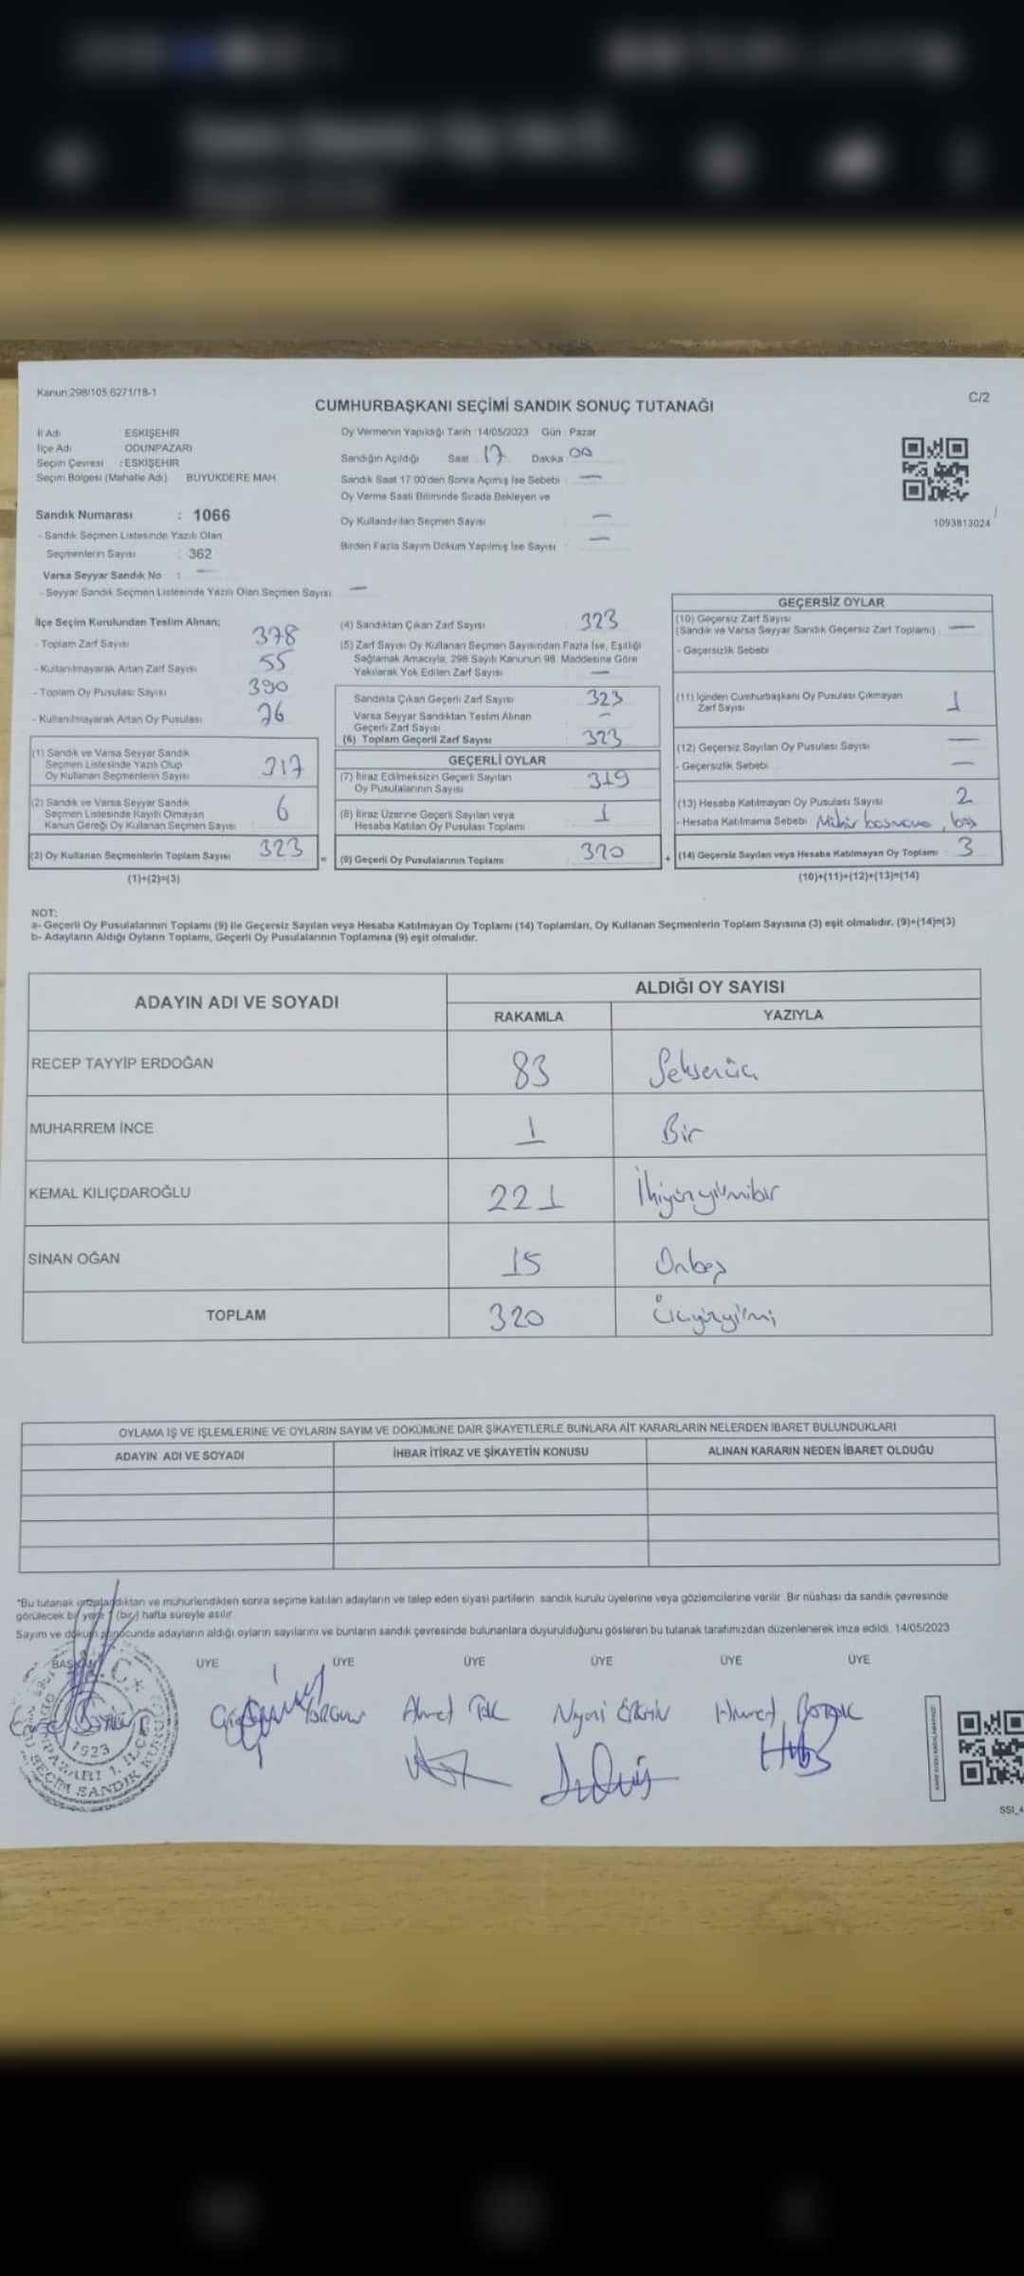 Kanun:298/105 6271/18-1
C/2
CUMHURBAŞKANI SEÇİMİ SANDIK SONUÇ TUTANAĞI
İl Adı : ESKİŞEHİR
İlçe Adı : ODUNPAZARI
Seçim Çevresi : ESKİŞEHİR
Seçim Bölgesi (Mahalle Adı) BÜYÜKDERE MAH.
Sandık Numarası : 1066
- Sandık Seçmen Listesinde Yazılı Olan
Seçmenlerin Sayısı : 362
Varsa Seyyar Sandık No : —
- Seyyar Sandık Seçmen Listesinde Yazılı Olan Seçmen Sayısı: —
Oy Vermenin Yapıldığı Tarih :14/05/2023 Gün : Pazar
Sandığın Açıldığı Saat : 17 Dakika : 00
Sandık Saat 17:00'den Sonra Açılmış İse Sebebi : —
Oy Verme Saati Bitiminde Sırada Bekleyen ve
Oy Kullandırılan Seçmen Sayısı : —
Birden Fazla Sayım Döküm Yapılmış İse Sayısı : —
1093813024
İlçe Seçim Kurulundan Teslim Alınan;
- Toplam Zarf Sayısı 378
- Kullanılmayarak Artan Zarf Sayısı 55
- Toplam Oy Pusulası Sayısı 390
- Kullanılmayarak Artan Oy Pusulası
(1) Sandık ve Varsa Seyyar Sandık
Seçmen Listesinde Yazılı Olup
Oy Kullanan Seçmenlerin Sayısı 317
(2) Sandık ve Varsa Seyyar Sandık
Seçmen Listesinde Kayıtlı Olmayan
Kanun Gereği Oy Kullanan Seçmen Sayısı 6
(3) Oy Kullanan Seçmenlerin Toplam Sayısı 323 =
(1)+(2)=(3)
(4) Sandıktan Çıkan Zarf Sayısı 323
(5) Zarf Sayısı Oy Kullanan Seçmen Sayısından Fazla İse, Eşitliği
Sağlamak Amacıyla, 298 Sayılı Kanunun 98. Maddesine Göre
Yakılarak Yok Edilen Zarf Sayısı —
Sandıkta Çıkan Geçerli Zarf Sayısı 323
Varsa Seyyar Sandıktan Teslim Alınan
Geçerli Zarf Sayısı —
(6) Toplam Geçerli Zarf Sayısı 323
GEÇERLİ OYLAR
(7) İtiraz Edilmeksizin Geçerli Sayılan
Oy Pusulalarının Sayısı 319
(8) İtiraz Üzerine Geçerli Sayılan veya
Hesaba Katılan Oy Pusulası Toplamı 1
(9) Geçerli Oy Pusulalarının Toplamı 320 +
GEÇERSİZ OYLAR
(10) Geçersiz Zarf Sayısı
(Sandık ve Varsa Seyyar Sandık Geçersiz Zarf Toplamı) : —
- Geçersizlik Sebebi
(11) İçinden Cumhurbaşkanı Oy Pusulası Çıkmayan
Zarf Sayısı 1
(12) Geçersiz Sayılan Oy Pusulası Sayısı —
- Geçersizlik Sebebi —
(13) Hesaba Katılmayan Oy Pusulası Sayısı 2
- Hesaba Katılmama Sebebi
(14) Geçersiz Sayılan veya Hesaba Katılmayan Oy Toplamı : 3
(10)+(11)+(12)+(13)=(14)
NOT:
a- Geçerli Oy Pusulalarının Toplamı (9) ile Geçersiz Sayılan veya Hesaba Katılmayan Oy Toplamı (14) Toplamları, Oy Kullanan Seçmenlerin Toplam Sayısına (3) eşit olmalıdır. (9)+(14)=(3)
b- Adayların Aldığı Oyların Toplamı, Geçerli Oy Pusulalarının Toplamına (9) eşit olmalıdır.
ADAYIN ADI VE SOYADI ALDIĞI OY SAYISI
RAKAMLA YAZIYLA
RECEP TAYYİP ERDOĞAN 83 Seksenüç
MUHARREM İNCE 1 Bir
KEMAL KILIÇDAROĞLU 221 İkiyüzyirmibir
SİNAN OĞAN 15 Onbeş
TOPLAM 320 Üçyüzyirmi
OYLAMA İŞ VE İŞLEMLERİNE VE OYLARIN SAYIM VE DÖKÜMÜNE DAİR ŞİKAYETLERLE BUNLARA AİT KARARLARIN NELERDEN İBARET BULUNDUKLARI
ADAYIN ADI VE SOYADI İHBAR İTİRAZ VE ŞİKAYETİN KONUSU ALINAN KARARIN NEDEN İBARET OLDUĞU
*Bu tutanak imzalandıktan ve mühürlendikten sonra seçime katılan adayların ve talep eden siyasi partilerin sandık kurulu üyelerine veya gözlemcilerine verilir. Bir nüshası da sandık çevresinde
görülecek bir yere 1 (bir) hafta süreyle asılır.
Sayım ve döküm sonucunda adayların aldığı oyların sayılarını ve bunların sandık çevresinde bulunanlara duyurulduğunu gösteren bu tutanak tarafımızdan düzenlenerek imza edildi. 14/05/2023
BAŞKAN ÜYE ÜYE ÜYE ÜYE ÜYE ÜYE
Ahmet
T.C.
1923